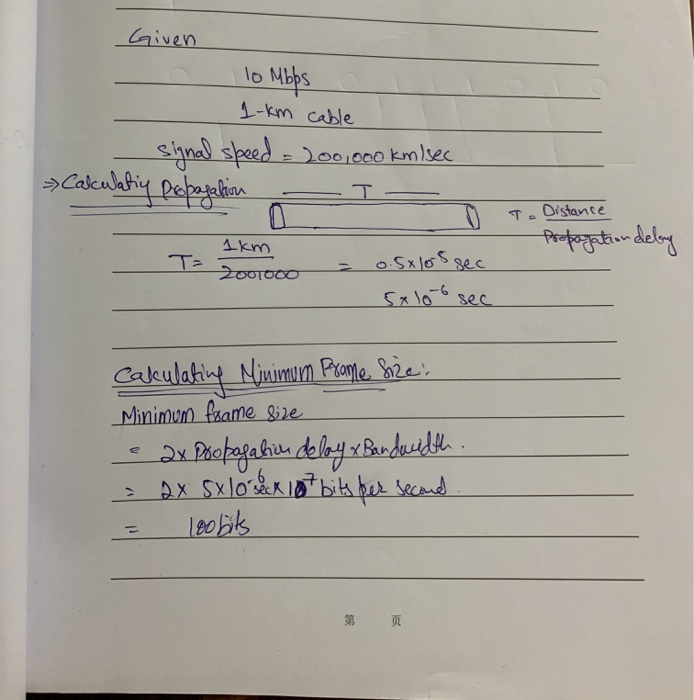 Given
10 Mbps
1-km cable
signal speed = 200,000 km/sec
⇒ Calculatiy Propagation
T
T = Distance
Propagation delay
T = 1km
200,000
= 0.5x10⁻⁵ sec
5x10⁻⁶ sec
Calculating Minimum Frame Size:
Minimum frame size
= 2x Propagation delay x Bandwidth.
= 2x 5x10⁻⁶ sec x 10⁷ bits per second.
= 100 bits
第 页